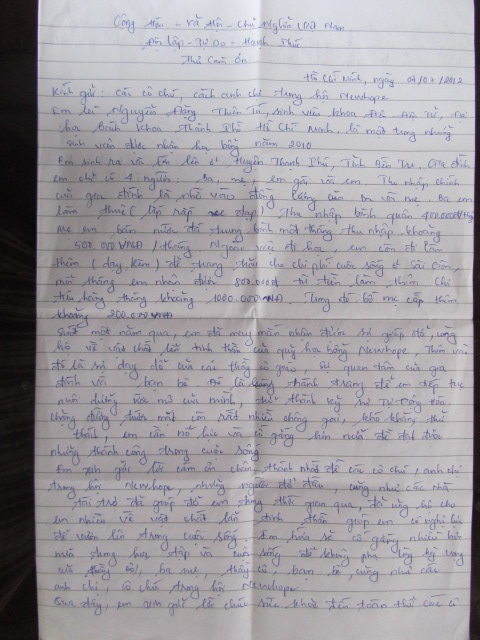 Cộng Hòa - Xã Hội - Chủ Nghĩa Việt Nam
Độc lập - Tự Do - Hạnh Phúc
Thư Cảm Ơn
Hồ Chí Minh, ngày 2012
Kính gửi: Các cô chú, cách anh chị trong hội Newhope
Em tên Nguyễn Đặng Thiên Tú, sinh viên khoa Điện Tử, Đại
học Bách Khoa Thành Phố Hồ Chí Minh, là một trong những
sinh viên được nhận học bổng năm 2010
Em sinh ra và lớn lên ở Huyện Thạnh Phú, Tỉnh Bến Tre, Gia đình
em chỉ có 4 người: Ba, mẹ, em gái và em. Thu nhập chính
của gia đình là nhờ vào đồng lương của ba và mẹ. Ba em
làm thuê (lắp ráp xe đạp) thu nhập bình quân 400.000
mẹ em bán nước đá trung bình một tháng thu nhập khoảng
500.000 VNĐ/tháng Ngoài việc đi học, em còn đi làm
thêm (dạy kèm) để trang trải cho chi phí cuộc sống ở Sài Gòn,
mỗi tháng em nhận được 800.000đ từ tiền làm thêm Chi
tiêu hàng tháng khoảng 1000.000VNĐ. Trong đó bố mẹ cấp thêm
khoảng 200.000 VNĐ
Suốt một năm qua, em đã may mắn nhận được sự giúp đỡ, ủng
hộ về vật chất lẫn tinh thần của quỹ học bổng Newhope, Thêm vào
đó là sự dạy dỗ của các thầy cô giáo, sự quan tâm của gia
đình và bạn bè. Đó là hành trang để em tiếp tục
nuôi dưỡng ước mơ của mình, trở thành kỹ sư
chặng đường trước mặt còn rất nhiều chông gai, khó khăn, thử
thách, em cần nỗ lực và cố gắng hơn nữa để đạt được
những thành công trong cuộc sống
Em xin gửi lời cảm ơn chân thành nhất đến các cô chú, anh chị
trong hội Newhope, những người đỡ đầu, cũng như các nhà
tài trợ đã giúp đỡ em trong thời gian qua, đã ủng hộ cho
em nhiều về vật chất lẫn tinh thần giúp em có nghị lực
để vươn lên trong cuộc sống. Em hứa sẽ cố gắng nhiều hơn
nữa trong học tập và cuộc sống để không phụ lòng kỳ vọng
của ba mẹ, thầy cô, bạn bè, cũng như các
anh chị, cô chú trong hội Newhope
Qua đây, em xin gửi lời chúc sức khỏe đến toàn thể các cô